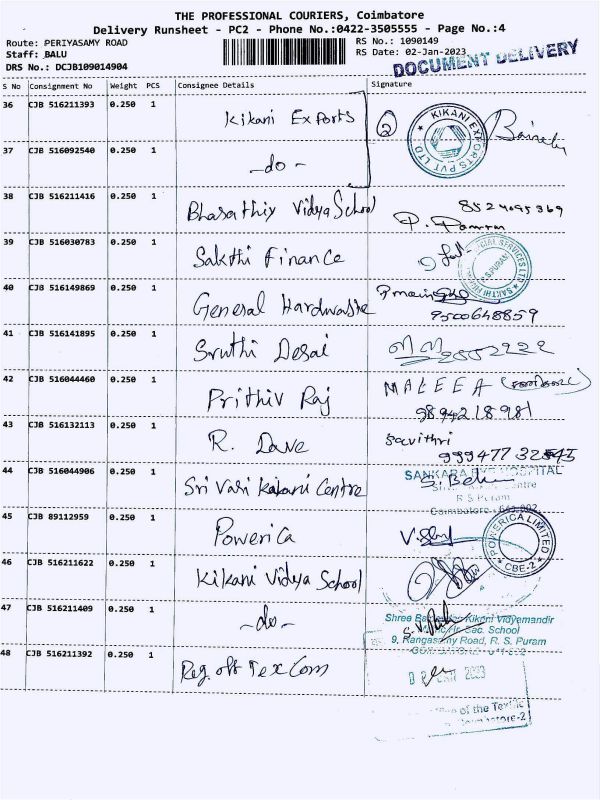 THE PROFESSIONAL COURIERS, Coimbatore
Delivery Runsheet - PC2 - Phone No.:0422-3505555 - Page No.:4
Route: PERIYASAMY ROAD
Staff: BALU
DRS No.: DCJB109014904
RS No.: 1090149
RS Date: 02-Jan-2023
DOCUMENT DELIVERY
S No Consignment No Weight PCS Consignee Details Signature
36 CJB 516211393 0.250 1 Kikani Exports
KIKANI EXPORTS PVT LTD
37 CJB 516092540 0.250 1 -do-
38 CJB 516211416 0.250 1 Bharathiy Vidya School 8524095369
39 CJB 516030783 0.250 1 Sakthi Finance
R.S.PURAM
40 CJB 516149869 0.250 1 General Hardware
9500648859
41 CJB 516141895 0.250 1 Sruthi Desai
42 CJB 516044460 0.250 1 Prithiv Raj
9894218981
43 CJB 516132113 0.250 1 R. Dave Savithri
44 CJB 516044906 0.250 1 Sri Vari Kalani Centre
SANKARA EYE HOSPITAL
Centre
R S Puram
45 CJB 89112959 0.250 1 Powerica
POWERICA LIMITED
CBE-2
46 CJB 516211622 0.250 1 Kikani Vidya School
47 CJB 516211409 0.250 1 -do-
Shree Kikani Vidyamandir
Sec. School
9, Rangasamy Road, R. S. Puram
48 CJB 516211392 0.250 1 Reg. off Tex Com
2023
of the Textile
Coimbatore-2